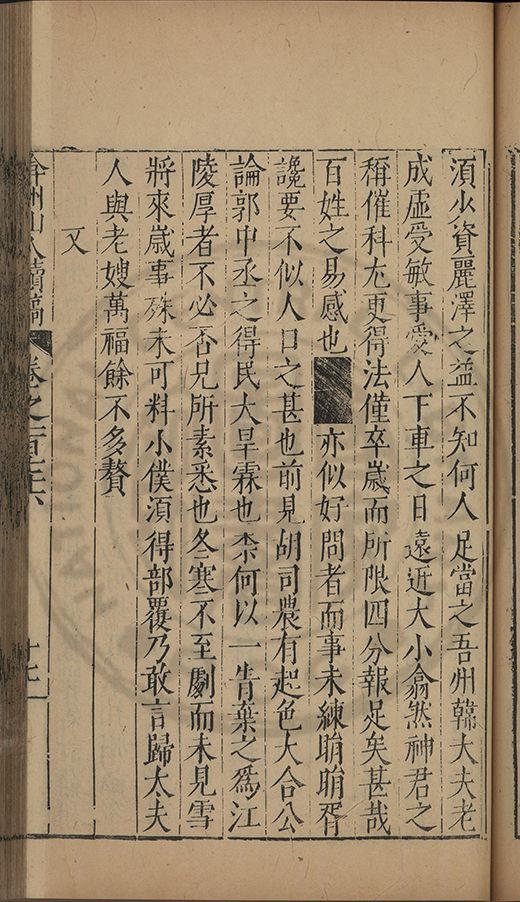 須少資麗澤之益不知何人足當之吾州韓大夫老
成虛受敏事愛人下車之日遠近大小翕然神君之
稱催科尤更得法僅卒歲而所限四分報足矣甚哉
百姓之易感也 亦似好問者而事未練睊睊胥
讒要不似人口之甚也前見胡司農有起色大合公
論郭中丞之得民大旱霖也柰何以一眚棄之爲江
陵厚者不必否兄所素悉也冬寒不至劇而未見雪
將來歲事殊未可料小僕須得部覆乃敢言歸太夫
人與老嫂萬福餘不多贅
又
弇州山人續稿 卷之一百七十六